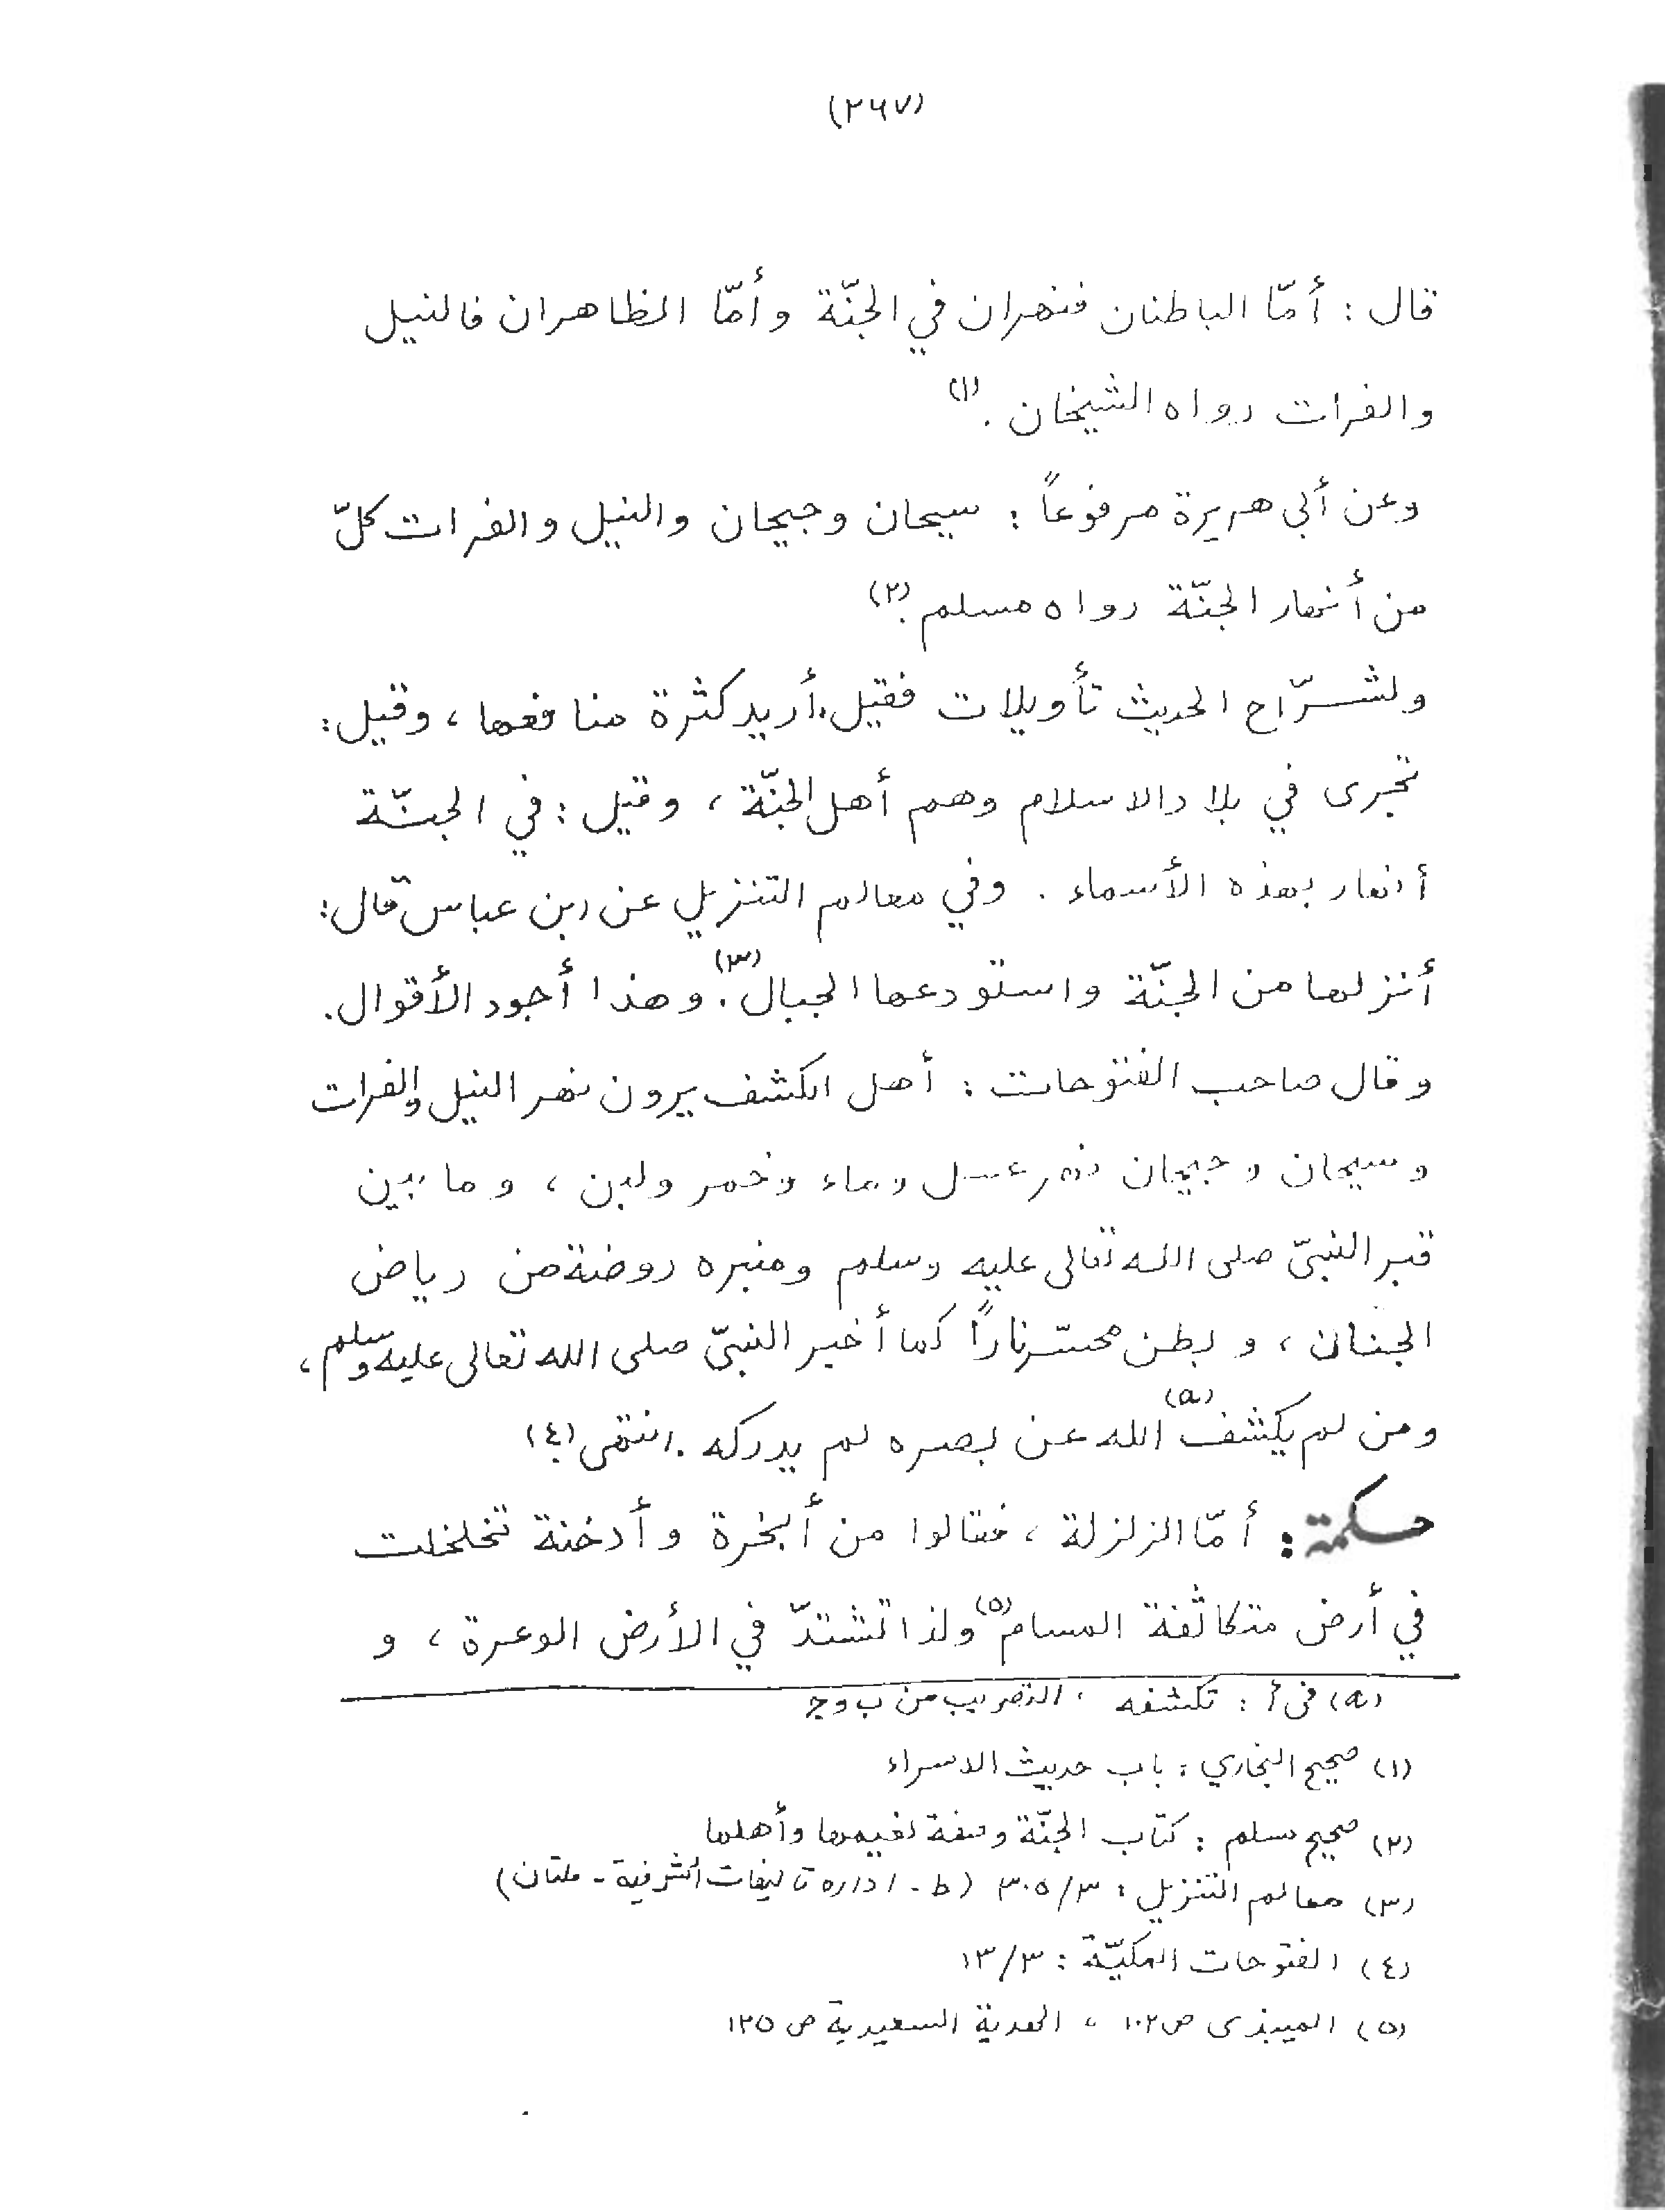 (٢٦٧)
قال : أمّا الباطنان فنهران في الجنّة وأمّا الظاهران فالنيل
والفرات رواه الشيخان . (١)
وعن أبي هريرة مرفوعاً : سيحان وجيحان والنيل والفرات كلّ
من أنهار الجنّة رواه مسلم . (٢)
ولشرّاح الحديث تأويلات فقيل: أريد كثرة منافعها ، وقيل :
تجرى في بلاد الاسلام وهم أهل الجنّة ، وقيل : في الجنّة
أنهار بهذه الأسماء . وفي معالم التنزيل عن ابن عباس قال :
أنزلها من الجنّة واستودعها الجبال (٣). وهذا أجود الأقوال .
وقال صاحب الفتوحات : أهل الكشف يرون نهر النيل والفرات
وسيحان وجيحان نهر عسل وماء وخمر ولبن ، وما بين
قبر النبيّ صلى الله تعالى عليه وسلم ومنبره روضة من رياض
الجنان ، وبطن محسّر ناراً كما أخبر النبيّ صلى الله تعالى عليه وسلم ،
ومن لم يكشف (a) الله عن بصره لم يدركه . انتهى (٤)
حكمة : أمّا الزلزلة ، فقالوا من أبخرة وأدخنة تخلخلت
في أرض متكاثفة المسام (٥) ولذا تشتدّ في الأرض الوعرة ، و
(a) في أ : تكشفه ، التصريب من ب وج
(١) صحيح البخاري : باب حديث الاسراء
(٢) صحيح مسلم : كتاب الجنّة وصفة نعيمها وأهلها
(٣) معالم التنزيل : ٣/٣٠٥ (ط . اداره تاليفات أشرفية - ملتان)
(٤) الفتوحات المكيّة : ٣/١٣
(٥) الميبذى ص ١٠٢ ، الهدية السعيدية ص ١٢٥